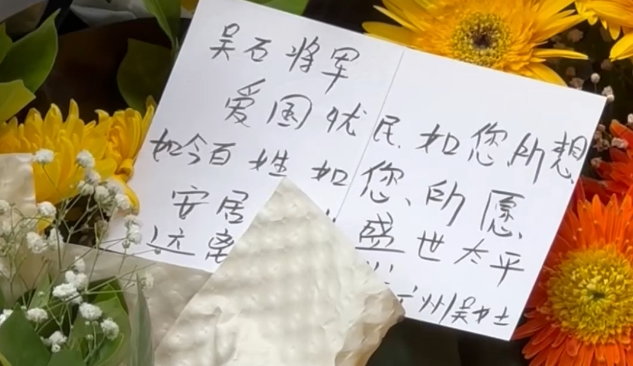 吴石将军
爱国忧民如您所想
如今百姓如您、所愿
安居 盛世太平
远离 广州吴女士